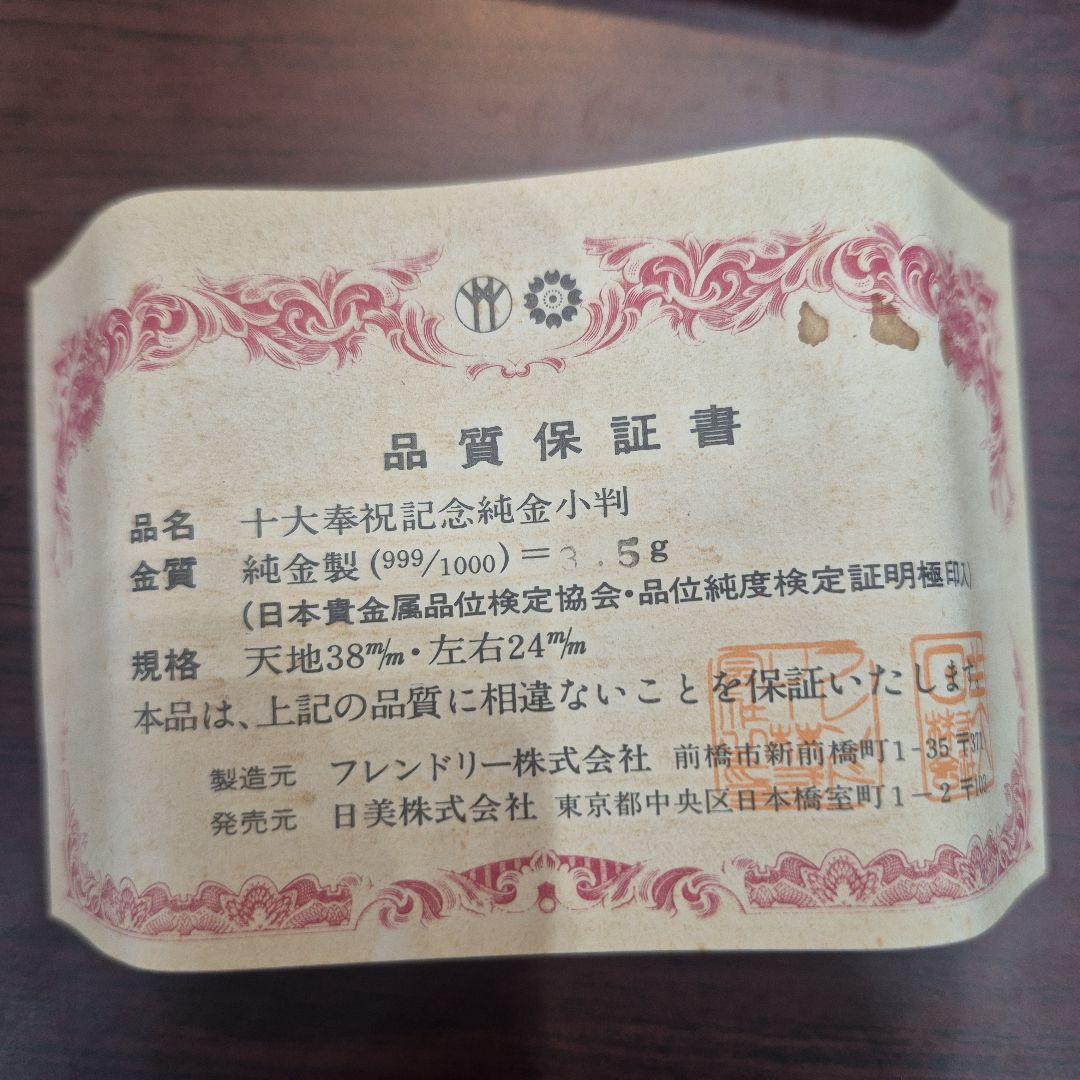 品質保証書
品名 十大奉祝記念純金小判
金質 純金製(999/1000)=3.5g
(日本貴金属品位検定協会・品位純度検定証明極印入)
規格 天地38m/m・左右24m/m
本品は、上記の品質に相違ないことを保証いたします
製造元 フレンドリー株式会社 前橋市新前橋町1-35 〒371
発売元 日美株式会社 東京都中央区日本橋室町1-2 〒103